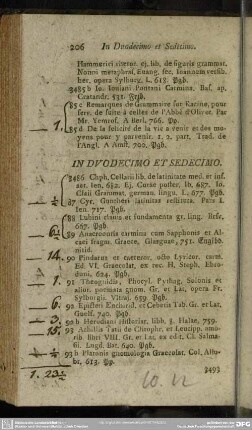 206 In Duodecimo et Sedecimo.
Hammerici alteror. ej. lib. de figuris grammat.
Nonni metaphras. Euang. sec. Ioannem versib.
her. opera Sylburg. L. 618. Pgb.
3485 b Io. Ioviani Pontani Carmina. Bas. ap.
Cratandr. 531. Frzb.
85 c Remarques de Grammaire sur Racine, pour
serv. de suite à celles de l'Abbé d'Olivet. Par
Mr. Formey. A Berl. 766. Pp.
85 d De la felicité de la vie a venir et des mo-
yens pour y parvenir. 1. 2. part. Trad. de
l'Angl. A Amst. 700. Pgb.
IN DVODECIMO ET SEDECIMO.
3486 Chph. Cellarii lib. de latinitate med. et inf.
aet. Ien. 682. Ej. Curae poster. ib. 687. Io.
Claii Grammat. german. lingu. L. 677. Pgb.
87 Cyr. Guntheri latinitas restituta. Pars I.
Ien. 717. Pgb.
88 Lubini clavis et fundamenta gr. ling. Brsc.
667. Pgb.
89 Anacreontis carmina cum Sapphonis et Al-
caei fragm. Graece. Glasguae, 751. Englbd.
nitid.
90 Pindarus et caeteror. octo Lyricor. carm.
Ed. VI. Graecolat. ex rec. H. Steph. Ebro-
duni, 624. Pgb.
91 Theognidis, Phocyl. Pythag. Solonis et
alior. poemata gnom. Gr. et Lat. opera Fr.
Sylburgii. Vltrai. 659. Pgb.
92 Epicteti Enchorid. et Cebetis Tab. Gr. et Lat.
Guelf. 740. Pgb.
92 b Herodiani Historiar. libb. 8. Halae, 759.
93 Achillis Tatii de Clitoph. et Leucipp. amo-
rib. libri VIII. Gr. et Lat. ex ed. c. Cl. Salma-
sii. Lugd. Bat. 640. Pgb.
93 b Platonis gnomologia Graecolat. Col. Allo-
br. 613. Pp.
3493